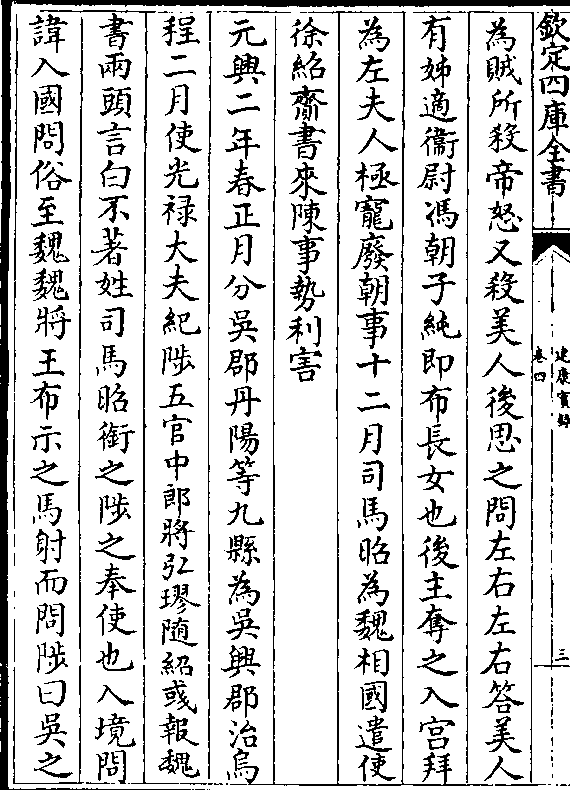 欽定四庫全書
建康實錄
卷四
三
為賊所殺帝怒又殺美人後思之問左右左右答美人
有姊適衞尉馮朝子純即布長女也後主奪之入宫拜
為左夫人極寵廢朝事十二月司馬昭為魏相國遣使
徐紹齋書來陳事勢利害
元興二年春正月分吳郡丹陽等九縣為吳興郡治烏
程二月使光禄大夫紀陟五官中郎將弘璆随紹彧報魏
書兩頭言白不著姓司馬昭銜之陟之奉使也入境問
諱入國問俗至魏魏將王布示之馬射而問陟曰吳之